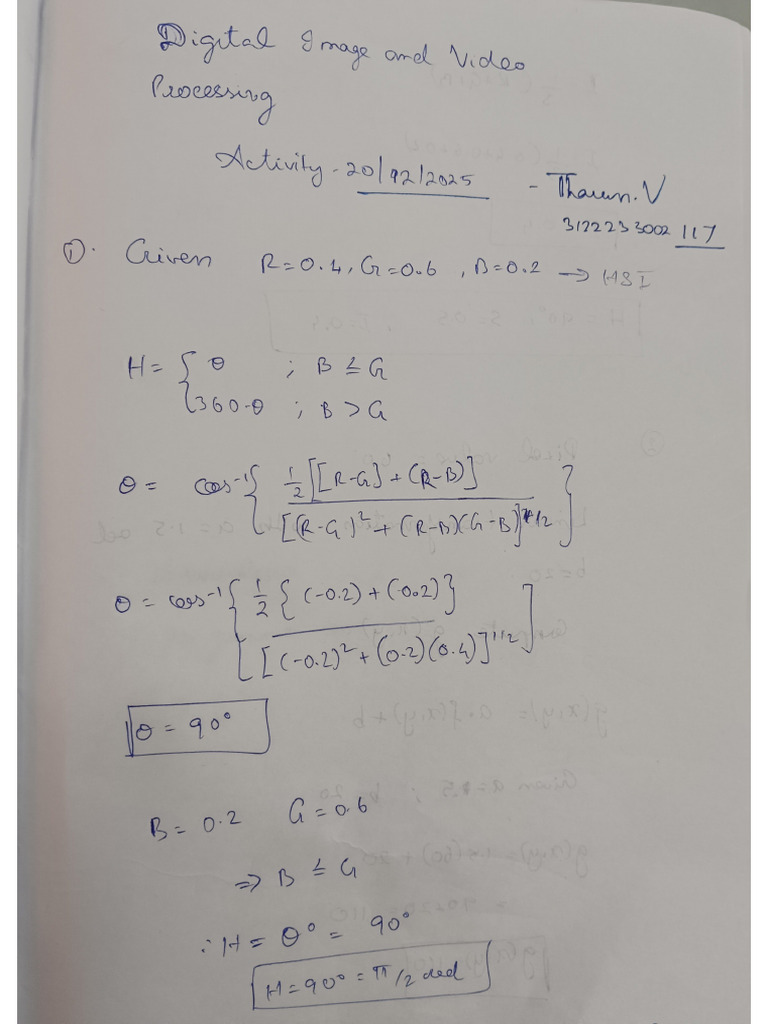 Digital Image and Video
Processing
Activity - 20/02/2025 - Tharun. V
3122233002 117
①. Given R=0.4, G=0.6, B=0.2 → HSI
H = { θ ; B ≤ G
{ 360-θ ; B > G
θ = cos⁻¹ { 1/2 [[R-G] + (R-B)] / [(R-G)² + (R-B)(G-B)]^1/2 }
θ = cos⁻¹ { 1/2 { (-0.2) + (-0.2) } / [(-0.2)² + (0.2)(0.4)]^1/2 ]
θ = 90°
B = 0.2 G = 0.6
⇒ B ≤ G
∴ H = θ° = 90°
H = 90° = π/2 rad